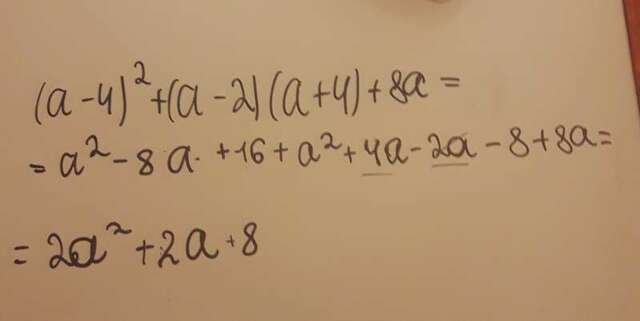 (a-4)²+(a-2)(a+4)+8a=
=a²-8a+16+a²+4a-2a-8+8a=
=2a²+2a+8